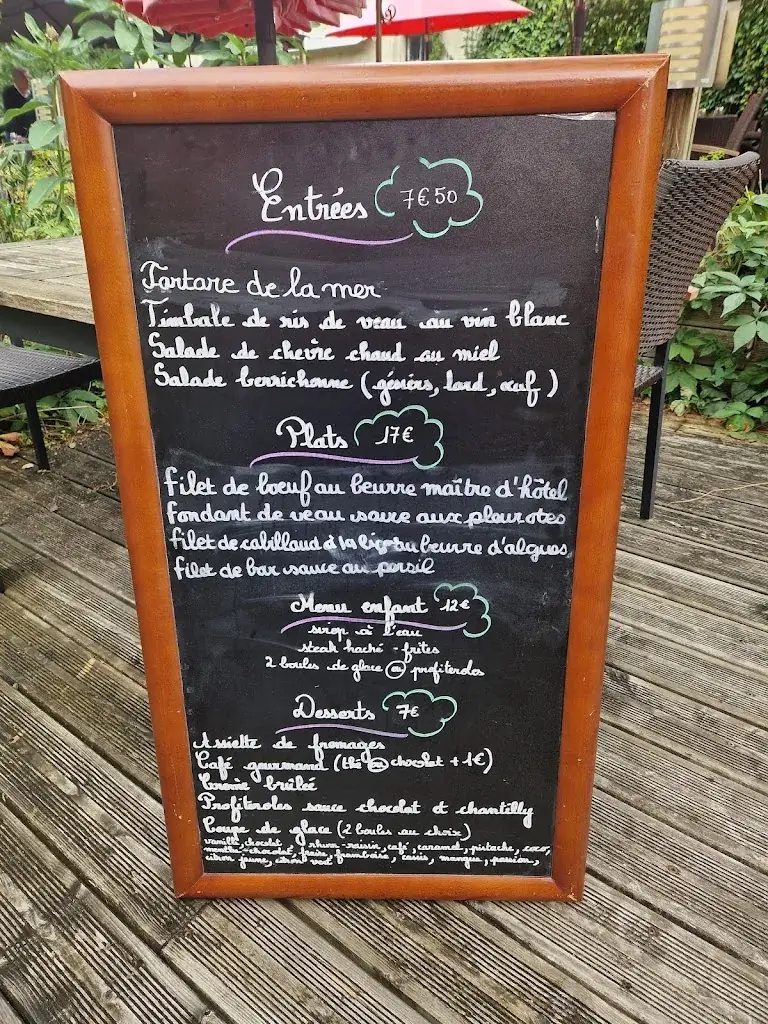 Entrées 7€50
Tartare de la mer
Timbale de ris de veau au vin blanc
Salade de chèvre chaud au miel
Salade berrichonne (gésiers, lard, œuf)
Plats 17€
filet de bœuf au beurre maître d'hôtel
fondant de veau sauce aux pleurotes
filet de cabillaud au beurre d'algues
filet de bar sauce au persil
Menu enfant 12€
sirop à l'eau
steak haché - frites
2 boules de glace ou profiteroles
Desserts 7€
Assiette de fromages
Café gourmand (thé ou chocolat + 1€)
Crème brûlée
Profiteroles sauce chocolat et chantilly
Coupe de glace (2 boules au choix)
vanille, chocolat, rhum-raisin, café, caramel, pistache, coco,
menthe-chocolat, fraise, framboise, cassis, mangue, passion,
citron jaune, citron vert